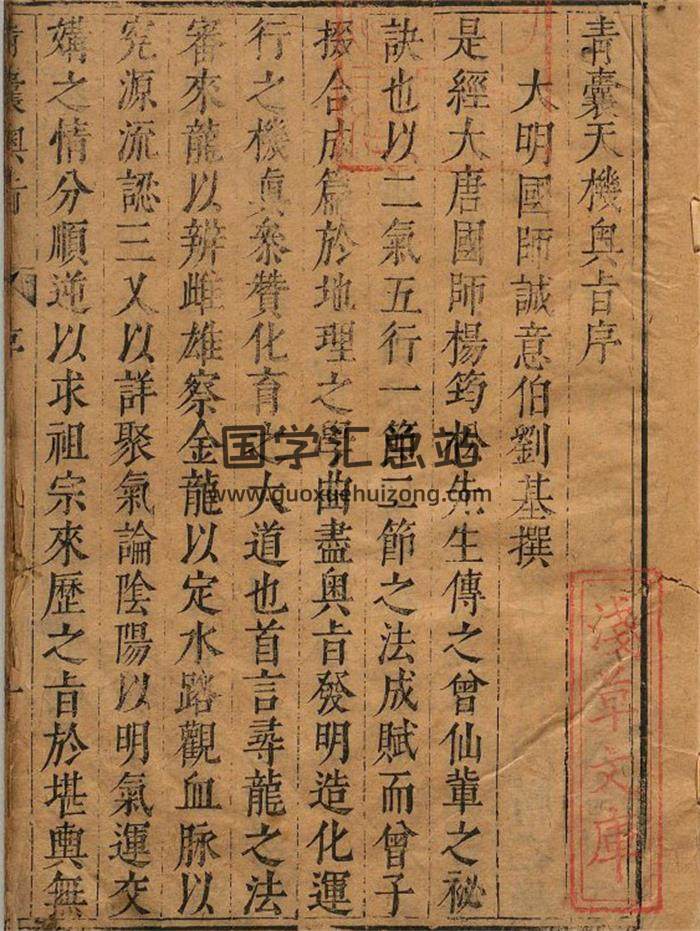 青囊天機奧旨序
大明國師誠意伯劉基撰
是經大唐國師楊筠松先生傳之曾仙輩之祕
訣也以二氣五行一節二節之法成賦而曾子
掇合成篇於地理之學曲盡奧旨發明造化運
行之機真叅贊化育之大道也首言尋龍之法
審來龍以辨雌雄察金龍以定水路觀血脉以
究源流認三叉以詳聚氣論陰陽以明氣運交
媾之情分順逆以求祖宗來歷之旨於堪輿無
青囊奧旨 序 一
淺草文庫
国学汇总站
www.guoxuehuizong.com